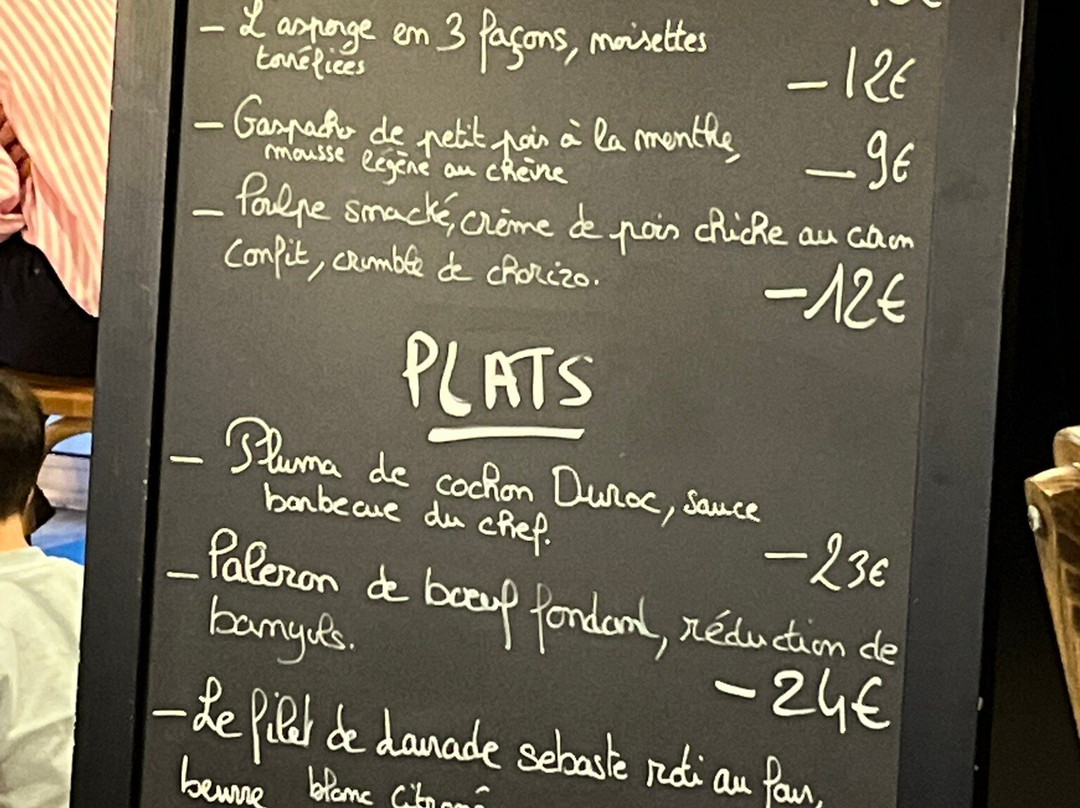 - L'asperge en 3 façons, noisettes
torréfiées
- 12€
- Gaspacho de petit pois à la menthe,
mousse légère au chèvre
- 9€
- Poulpe snacké, crème de pois chiche au citron
confit, crumble de chorizo.
- 12€
PLATS
- Pluma de cochon Duroc, sauce
barbecue du chef.
- 23€
- Paleron de bœuf fondant, réduction de
banyuls.
- 24€
- Le filet de daurade sebaste roti au four,
beurre blanc citronné